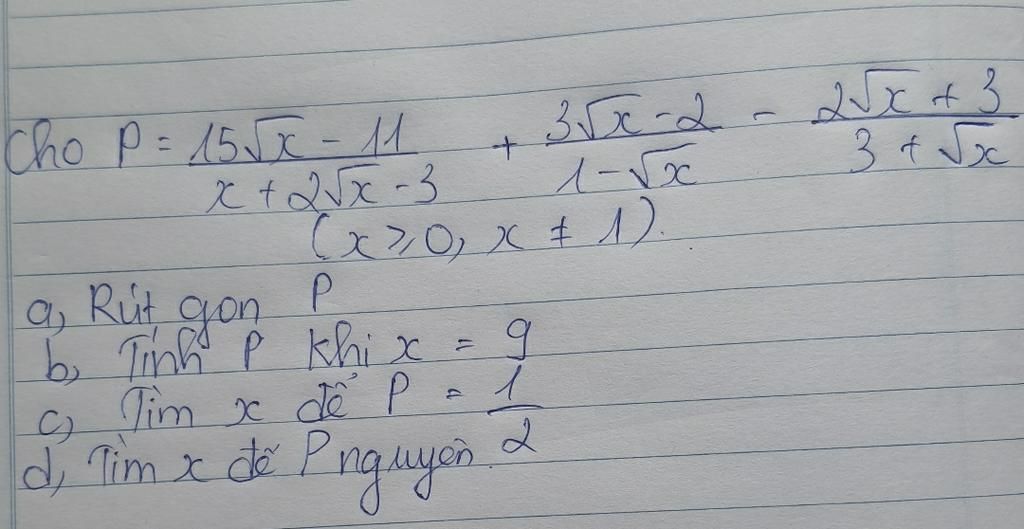 Cho P = (15√x - 11)/(x + 2√x - 3) + (3√x - 2)/(1 - √x) - (2√x + 3)/(3 + √x)
(x ⩾ 0, x ≠ 1).
a, Rút gọn P
b, Tính P khi x = 9
c, Tìm x để P = 1/2
d, Tìm x để P nguyên.